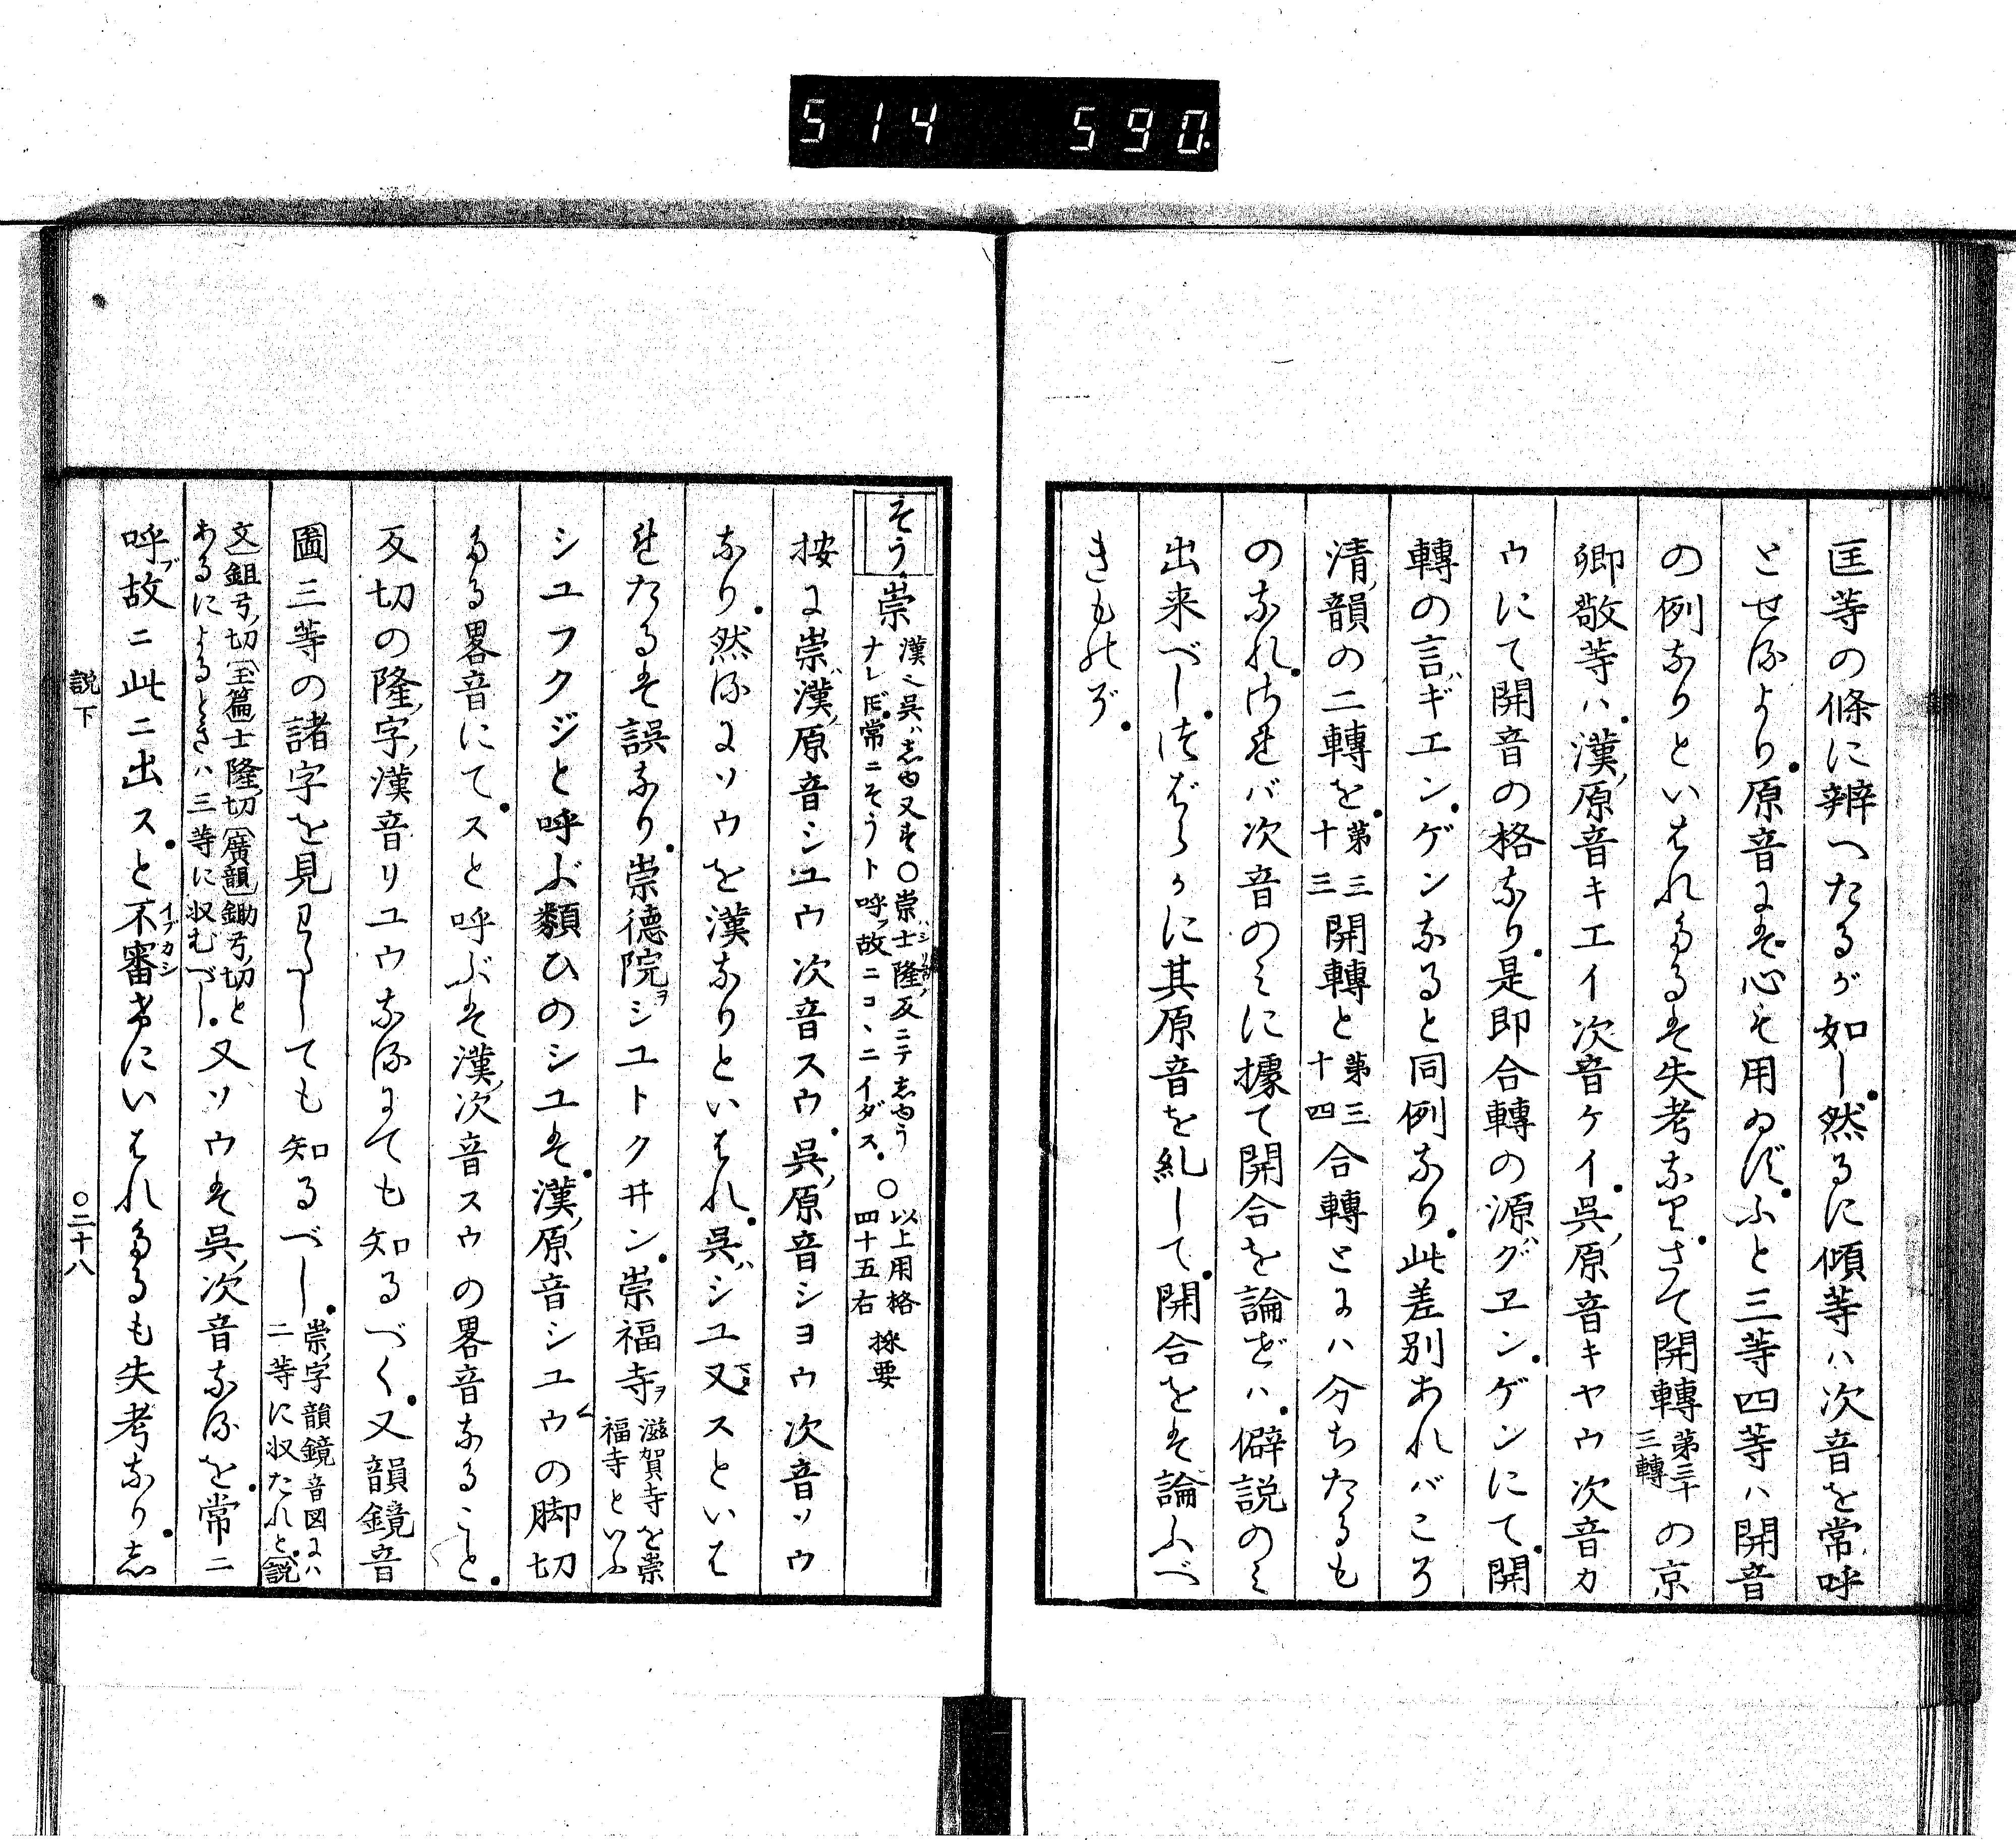 514 590
匡等の條に辨へたるが如し然るに傾等ハ次音を常呼
とせるより原音には心も用ゐずふと三等四等ハ開音
の例なりといはれたるは失考なりさて開轉第三十三轉の京
卿敬等ハ漢ノ原音キエイ次音ケイ呉ノ原音キヤウ次音カ
ウにて開音の格なり是即合轉の源ハグヱンゲンにて開
轉の言ハギエンゲンなると同例なり此差別あれバこそ
清ノ韻の二轉を第三十三開轉と第三十四合轉とにハ分ちたるも
のなれされバ次音のミに據て開合を論ぜバ僻説のミ
出来べしつばらかに其原音を糺して開合をば論ふべ
きものぞ
そう 崇 漢ハ呉ハしゆ又す○崇ハ士隆ノ反ニテしゆうナレド常ニそうト呼フ故ニココニイダス○以上用格四十五右 採要
按に崇ハ漢ノ原音シユウ次音スウ呉ノ原音シヨウ次音ソウ
なり然るにソウを漢なりといはれ呉ハシユ又スといは
れたるは誤なり崇德院ヲシユトクヰン崇福寺ヲ滋賀寺を崇福寺といふ
シユフクジと呼ぶ類ひのシユは漢ノ原音シユウの脚切
たる畧音にてスと呼ぶは漢ノ次音スウの畧音なること
反切の隆ノ字ノ漢音リユウなるにても知るべく又韻鏡音
圖三等の諸字を見わたしても知るべし崇ノ字韻鏡音図にハ二等に収たれど説
文鉏弓ノ切玉篇士隆ノ切廣韻鋤弓ノ切とあるによるときハ三等に収むべし又ソウは呉ノ次音なるを常ニ
呼ブ故ニ此ニ出スと不審イブカシげにいはれたるも失考なりし
説下 ○二十八